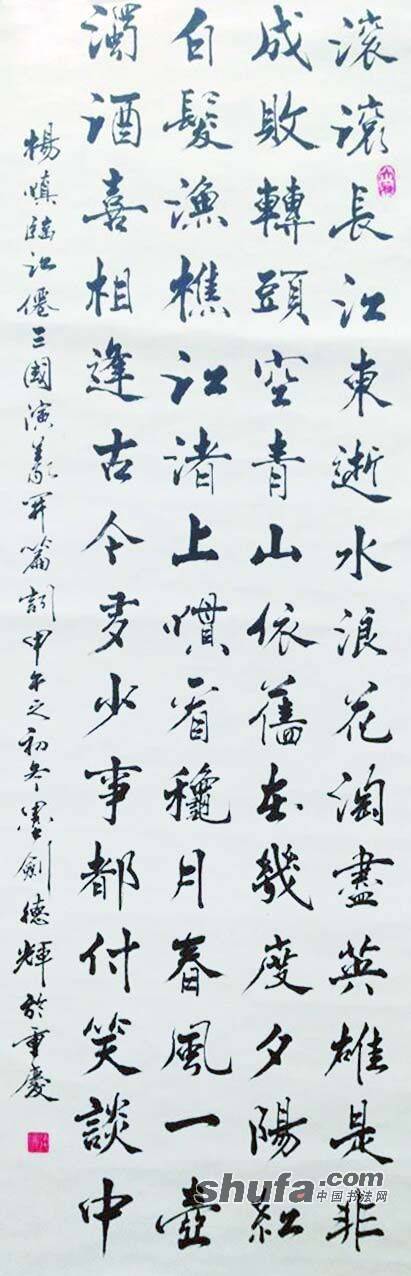 滾滾長江東逝水浪花淘盡英雄是非
成敗轉頭空青山依舊在幾度夕陽紅
白髮漁樵江渚上慣看龝月春風一壺
濁酒喜相逢古今多少事都付笑談中
楊慎臨江僊三國演義開篇詞甲午之初冬墨劍德輝於重慶
shufa.com
中国书法网